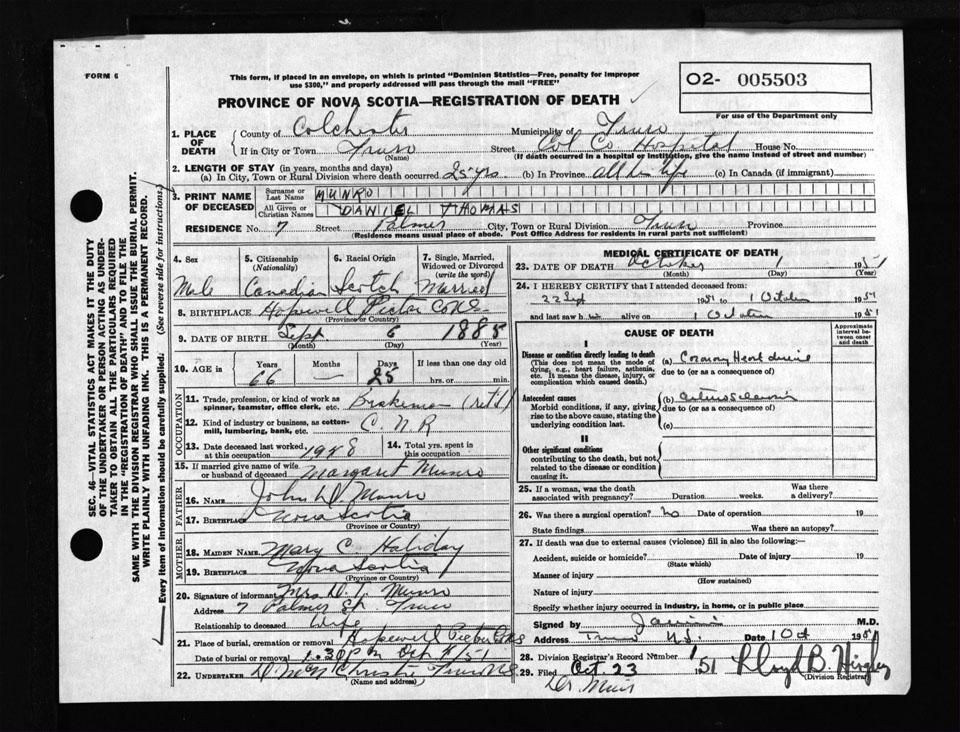 FORM 6
This form, if placed in an envelope, on which is printed "Dominion Statistics—Free, penalty for improper
use $300," and properly addressed will pass through the mail "FREE"
O2- 005503
PROVINCE OF NOVA SCOTIA—REGISTRATION OF DEATH
For use of the Department only
1. PLACE OF DEATH
County of Colchester Municipality of Truro
If in City or Town Truro Street Col Co Hospital House No.
(Name) (If death occurred in a hospital or institution, give the name instead of street and number)
2. LENGTH OF STAY (in years, months and days)
(a) In City, Town or Rural Division where death occurred 25 yrs. (b) In Province all his life (c) In Canada (if immigrant)
3. PRINT NAME OF DECEASED
Surname or Last Name MUNRO
All Given or Christian Names DANIEL THOMAS
RESIDENCE No. 7 Street Palmer City, Town or Rural Division Truro Province
(Residence means usual place of abode. Post Office Address for residents in rural parts not sufficient)
4. Sex 5. Citizenship (Nationality) 6. Racial Origin 7. Single, Married, Widowed or Divorced (write the word)
Male Canadian Scotch Married
8. BIRTHPLACE Hopewell Pictou Co N.S.
(Province or Country)
9. DATE OF BIRTH Sept 6 1885
(Month) (Day) (Year)
10. AGE in Years Months Days If less than one day old
66 — 25 hrs. or min.
OCCUPATION
11. Trade, profession, or kind of work as
spinner, teamster, office clerk, etc. Brakeman (ret'd)
12. Kind of industry or business, as cotton-
mill, lumbering, bank, etc. C.N.R
13. Date deceased last worked at this occupation 1948 14. Total yrs. spent in this occupation
15. If married give name of wife
or husband of deceased Margaret Munro
FATHER
16. NAME John D. Munro
17. BIRTHPLACE Nova Scotia
(Province or Country)
MOTHER
18. MAIDEN NAME Mary C. Haliday
19. BIRTHPLACE Nova Scotia
(Province or Country)
20. Signature of informant Mrs D. T. Munro
Address 7 Palmer St. Truro
Relationship to deceased Wife
21. Place of burial, cremation or removal Hopewell Pictou Co N.S.
Date of burial or removal 1.30 P.M. Oct 4/51
22. UNDERTAKER Christie Truro N.S.
(Name and address)
MEDICAL CERTIFICATE OF DEATH
23. DATE OF DEATH October 1 1951
(Month) (Day) (Year)
24. I HEREBY CERTIFY that I attended deceased from:
22 Sept 1951 to 1 October 1951
and last saw h im alive on 1 October 1951
CAUSE OF DEATH
Approximate interval between onset and death
I
Disease or condition directly leading to death
(This does not mean the mode of dying, e.g., heart failure, asthenia, etc. It means the disease, injury, or complication which caused death.)
(a) Coronary Heart disease
due to (or as a consequence of)
Antecedent causes
Morbid conditions, if any, giving rise to the above cause, stating the underlying condition last.
(b) arteriosclerosis
due to (or as a consequence of)
(c)
II
Other significant conditions
contributing to the death, but not related to the disease or condition causing it.
25. If a woman, was the death associated with pregnancy? Duration weeks. Was there a delivery?
26. Was there a surgical operation? no Date of operation 19
State findings Was there an autopsy?
27. If death was due to external causes (violence) fill in also the following:—
Accident, suicide or homicide? Date of injury 19
(State which)
Manner of injury
(How sustained)
Nature of injury
Specify whether injury occurred in industry, in home, or in public place
Signed by M.D.
Address Truro N.S. Date 1 Oct 1951
28. Division Registrar's Record Number
29. Filed Oct. 23 1951 Lloyd B.
(Division Registrar)
Dr. Muir
SEC. 46—VITAL STATISTICS ACT MAKES IT THE DUTY
OF THE UNDERTAKER OR PERSON ACTING AS UNDER-
TAKER TO OBTAIN ALL THE PARTICULARS REQUIRED
IN THE "REGISTRATION OF DEATH" AND TO FILE THE
SAME WITH THE DIVISION REGISTRAR WHO SHALL ISSUE THE BURIAL PERMIT.
WRITE PLAINLY WITH UNFADING INK. THIS IS A PERMANENT RECORD.
Every item of information should be carefully supplied. (See reverse side for instructions.)